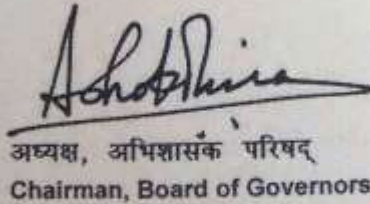 अध्यक्ष, अभिशासक परिषद्
Chairman, Board of Governors